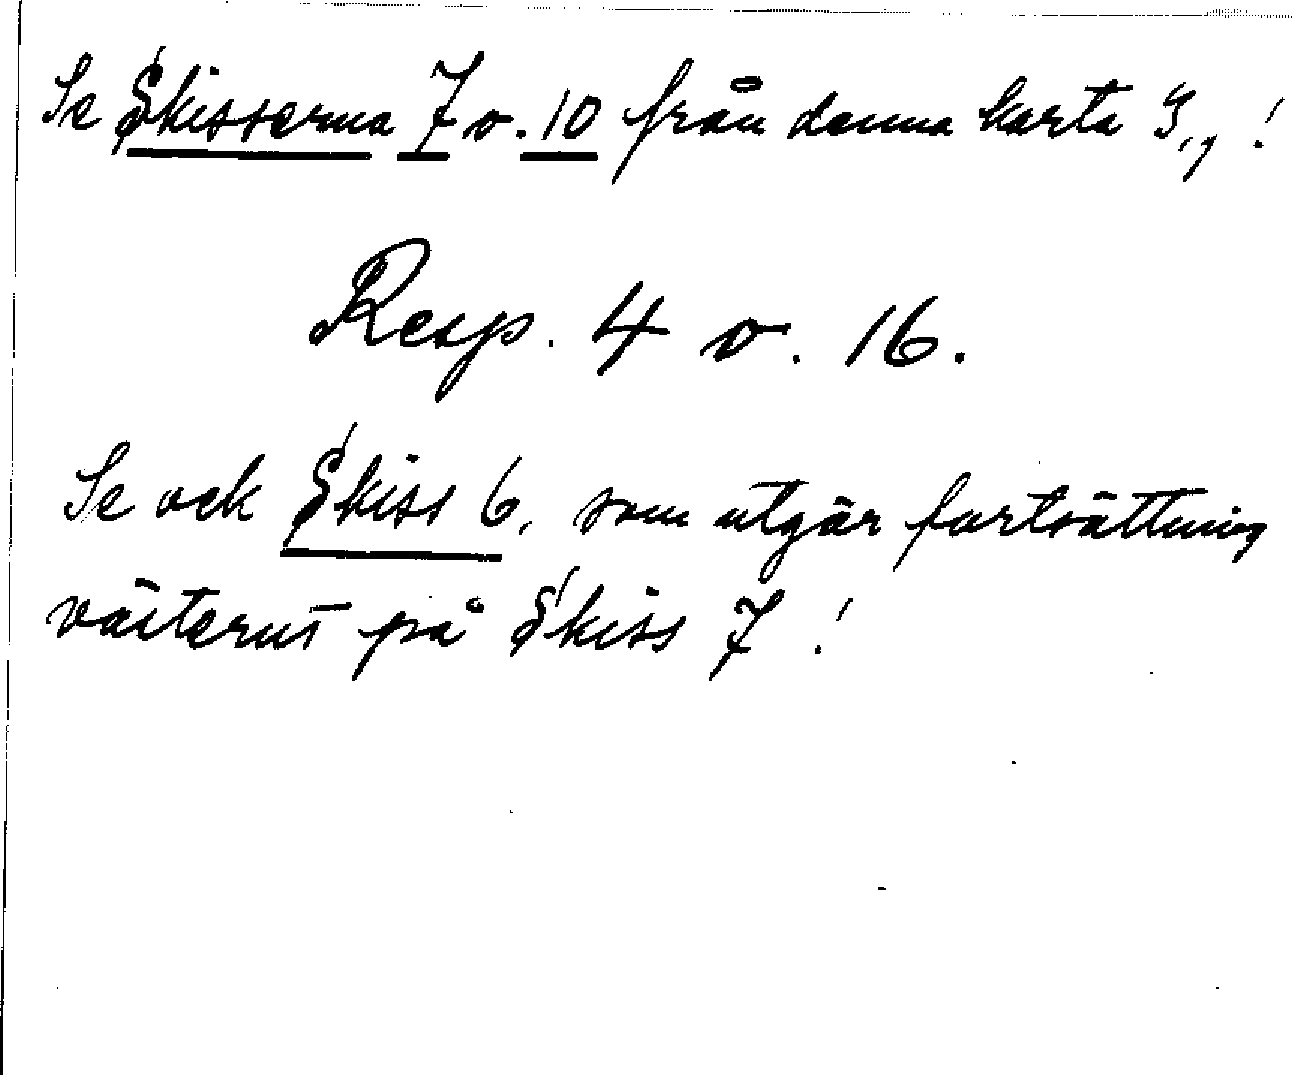 Se Skisserna 7 o. 10 från denna karta
Resp. 4 o. 16.
Se ock Skiss 6, som utgör fortsättning
västerut på Skiss 7!